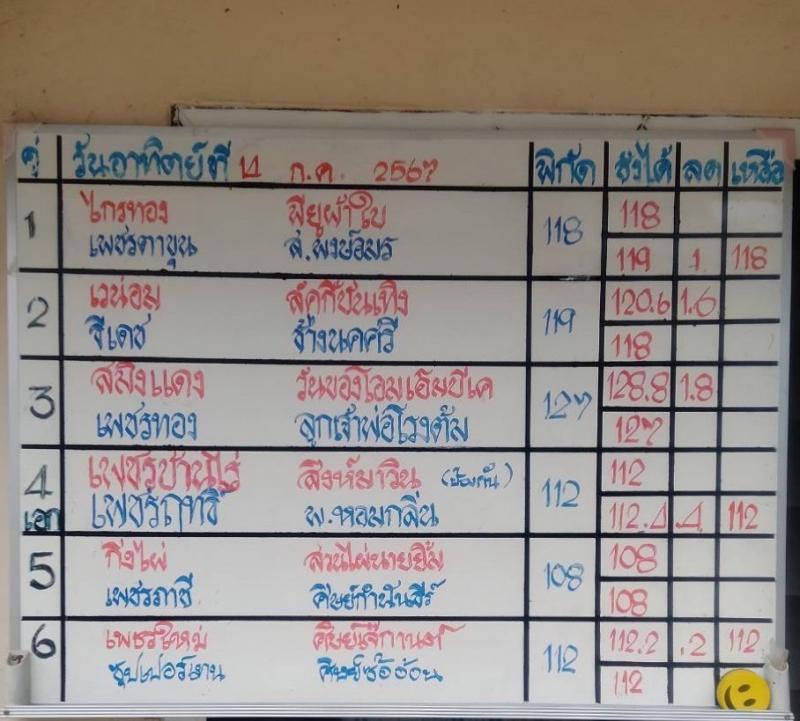 คู่ วันอาทิตย์ที่ 14 ก.ค. 2567 พิกัด ชั่งได้ ลด เหลือ
1 ไกรทอง พียูผ้าใบ 118 118
เพชรตาขุน ส.พงษ์อมร 119 1 118
2 เวน่อม ลัคกี้บันเทิง 119 120.6 1.6
ซีเดช ช้างนคศรี 118
3 สมิงแดง วันของโอมเอ็มบีเค 127 128.8 1.8
เพชรทอง ลูกเจ้าพ่อโรงต้ม 127
4 เพชรบ้านไร่ สิงห์มาวิน (ป้องกัน) 112 112
เอก เพชรฤทธิ์ พ.หอมกลิ่น 112.4 .4 112
5 กิ่งไผ่ สวนไผ่นายยิ้ม 108 108
เพชรราชี ศิษย์กำนันสีร์ 108
6 เพชรใหม่ ศิษย์เจ๊กานต์ 112 112.2 .2 112
ซุปเปอร์เทน 112